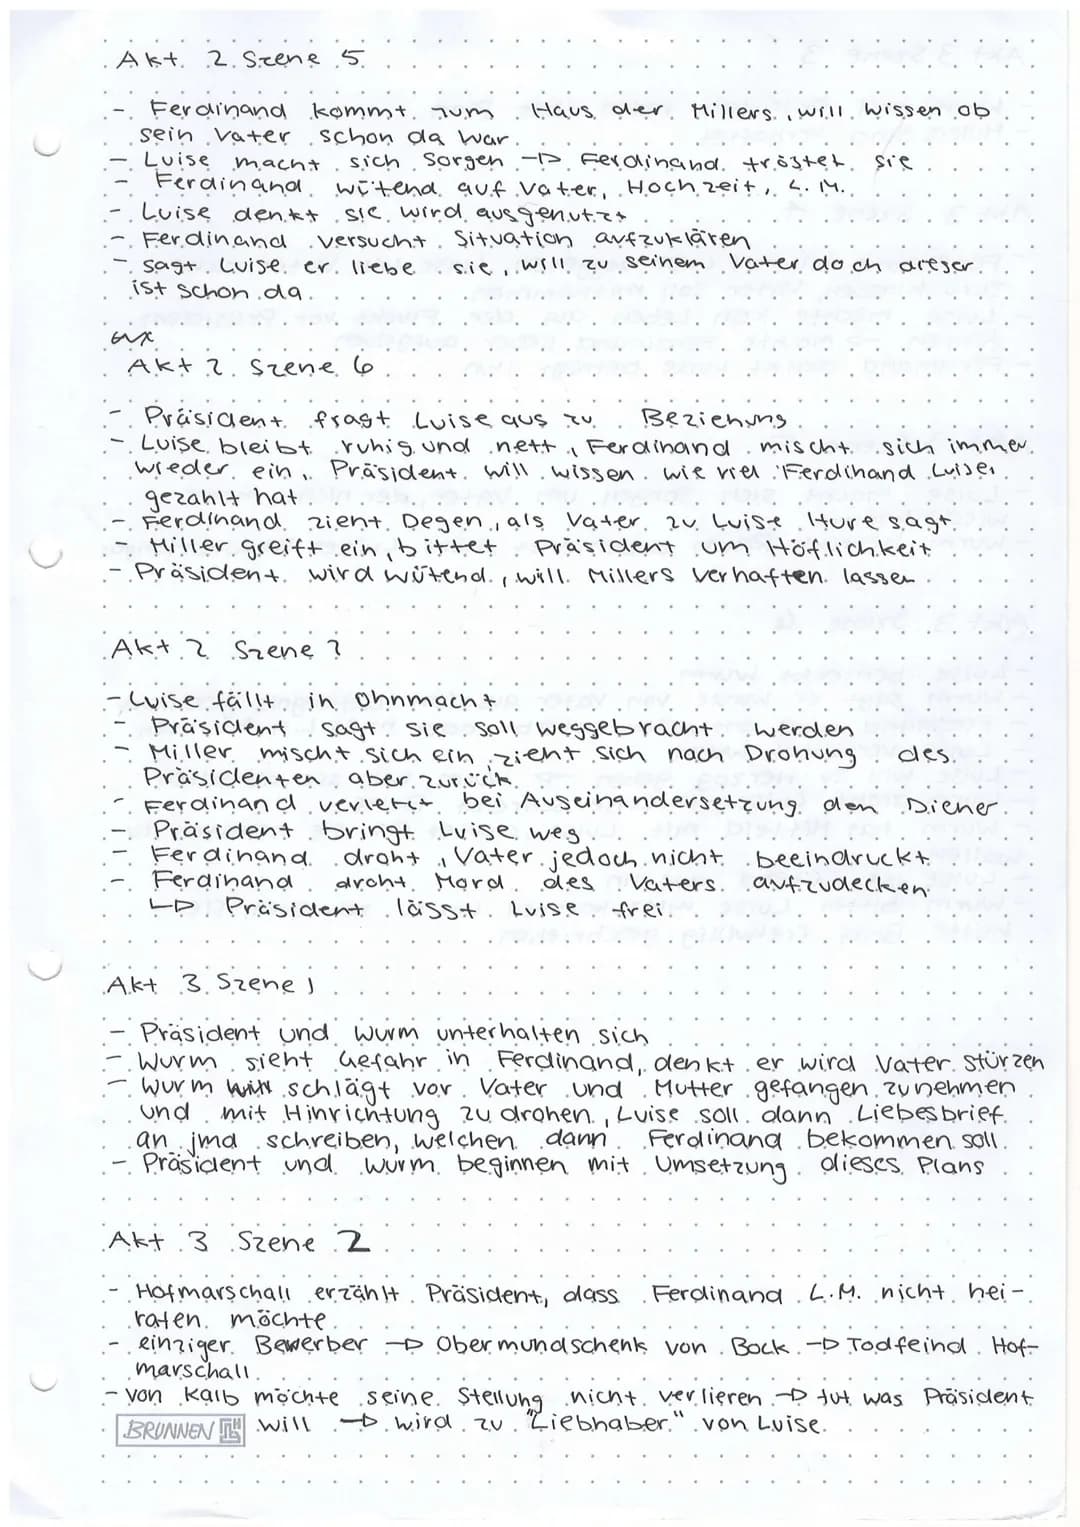 Akt 2 Szene 5
- Ferdinand kommt zum Haus der Millers, will wissen ob
sein Vater schon da war
- Luise macht sich Sorgen → Ferdinand tröstet sie
- Ferdinand wütend auf Vater, Hochzeit, L. M.
- Luise denkt sie wird ausgenutzt
- Ferdinand versucht Situation aufzuklären
- sagt Luise er liebe sie, will zu seinem Vater doch dieser
ist schon da
Akt 2 Szene 6
- Präsident fragt Luise aus zu Beziehung
- Luise bleibt ruhig und nett, Ferdinand mischt sich immer
wieder ein, Präsident will wissen wie viel Ferdinand Luise
gezahlt hat
- Ferdinand zieht Degen, als Vater zu Luise Hure sagt
- Miller greift ein, bittet Präsident um Höflichkeit
- Präsident wird wütend, will Millers verhaften lassen
Akt 2 Szene 7
- Luise fällt in Ohnmacht
- Präsident sagt sie soll weggebracht werden
- Miller mischt sich ein, zieht sich nach Drohung des
Präsidenten aber zurück
- Ferdinand verletzt bei Auseinandersetzung den Diener
- Präsident bringt Luise weg
- Ferdinand droht, Vater jedoch nicht beeindruckt
- Ferdinand droht Mord des Vaters aufzudecken
↳ Präsident lässt Luise frei
Akt 3 Szene 1
- Präsident und Wurm unterhalten sich
- Wurm sieht Gefahr in Ferdinand, denkt er wird Vater stürzen
- Wurm schlägt vor Vater und Mutter gefangen zu nehmen
und mit Hinrichtung zu drohen, Luise soll dann Liebesbrief
an jmd schreiben, welchen dann Ferdinand bekommen soll
- Präsident und Wurm beginnen mit Umsetzung dieses Plans
Akt 3 Szene 2
- Hofmarschall erzählt Präsident, dass Ferdinand L.M. nicht hei-
raten möchte
- einziger Bewerber → Obermundschenk von Bock → Todfeind Hof-
marschall
- von Kalb möchte seine Stellung nicht verlieren → tut was Präsident
BRUNNEN will → wird zu "Liebhaber" von Luise.